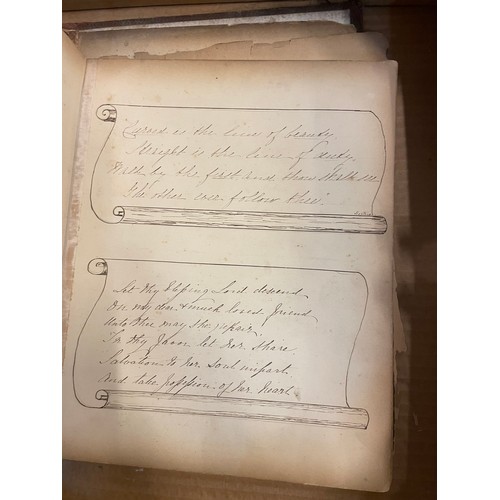 "Curved is the line of beauty
Straight is the line of duty,
Walk by the first and thou shalt see
The other ever follow thee".
Let thy blessing Lord descend
On my dear & much loved friend
Unto thee may she repair,
In thy favor let her share.
Salvation to her soul impart
And take possession of her heart.